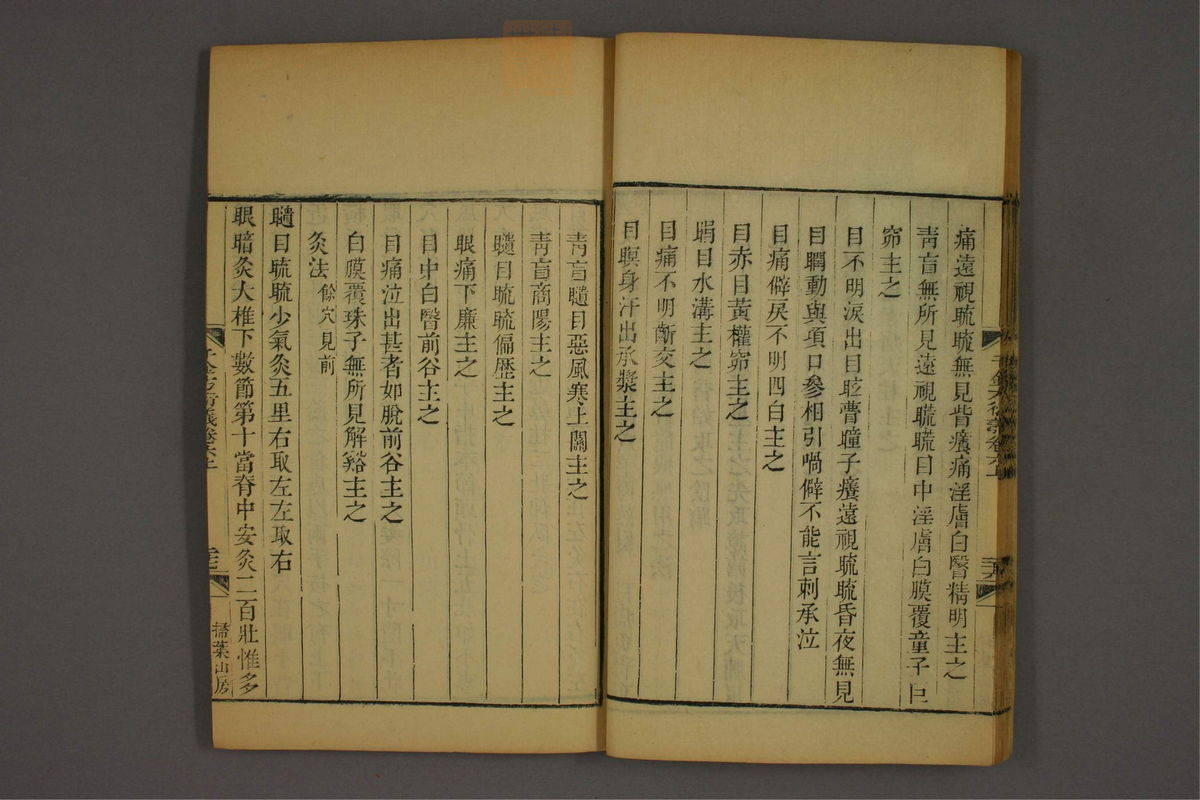 痛遠視䀮䀮無見眥癢痛淫膚白翳精明主之
靑盲無所見遠視䀮䀮目中淫膚白膜覆童子巨
窌主之
目不明淚出目眩瞢瞳子癢遠視䀮䀮昏夜無見
目瞤動與項口參相引喎僻不能言刺承泣
目痛僻戾不明四白主之
目赤目黃權窌主之
睊目水溝主之
目痛不明齗交主之
目瞑身汗出承漿主之
千金方衍義卷六上
靑盲䁾目惡風寒上關主之
靑盲商陽主之
䁾目䀮䀮偏歷主之
眼痛下廉主之
目中白翳前谷主之
目痛泣出甚者如脫前谷主之
白膜覆珠子無所見解谿主之
灸法 餘穴見前
䁾目䀮䀮少氣灸五里右取左左取右
眼暗灸大椎下數節第十當脊中安灸二百壯惟多
千金方衍義卷六上
掃葉山房